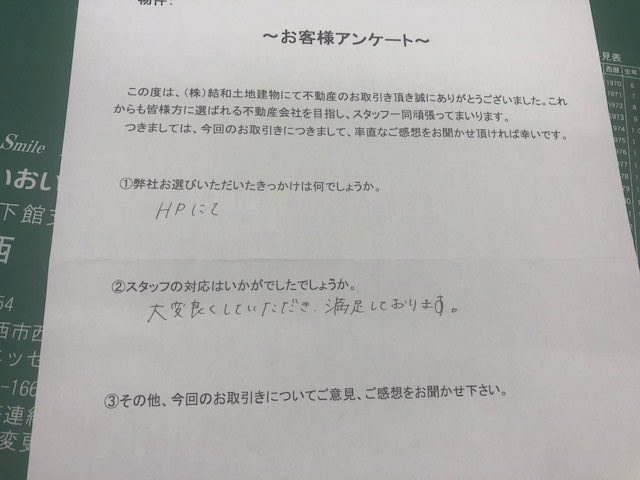 物件：
～お客様アンケート～
この度は、（株）結和土地建物にて不動産のお取引き頂き誠にありがとうございました。これ
からも皆様方に選ばれる不動産会社を目指し、スタッフ一同頑張ってまいります。
つきましては、今回のお取引きにつきまして、率直なご感想をお聞かせ頂ければ幸いです。
①弊社お選びいただいたきっかけは何でしょうか。
HPにて
②スタッフの対応はいかがでしたでしょうか。
大変良くしていただき、満足しております。
③その他、今回のお取引きについてご意見、ご感想をお聞かせ下さい。
Smile
いおい
下館支
西
54
西市西
ッセ
-166
連絡
変更
見表
西暦 生年
1970
1971